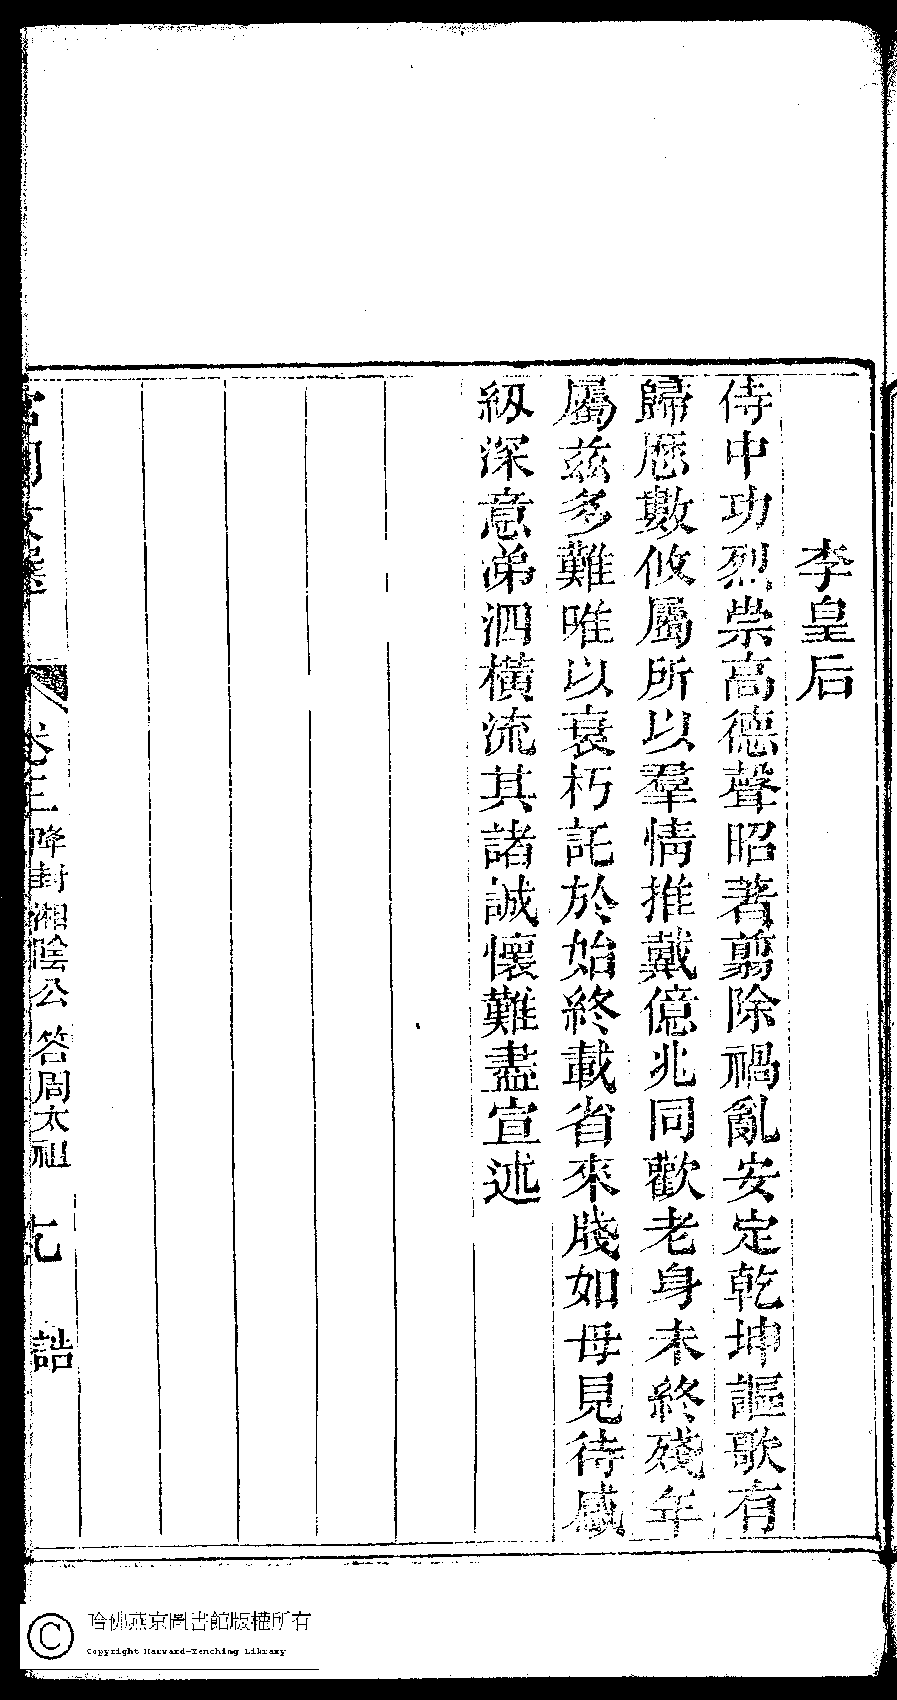 李皇后
侍中功烈崇高德聲昭著翦除禍亂安定乾坤謳歌有
歸厯數攸屬所以羣情推戴億兆同歡老身未終殘年
屬茲多難唯以衰朽託於始終載省來牋如母見待感
紉深意涕泗橫流其諸誠懷難盡宣述
宮閨文選
卷三
降封湘陰公 答周太祖
誥
哈佛燕京圖書館版權所有
Copyright Harvard-Yenching Library